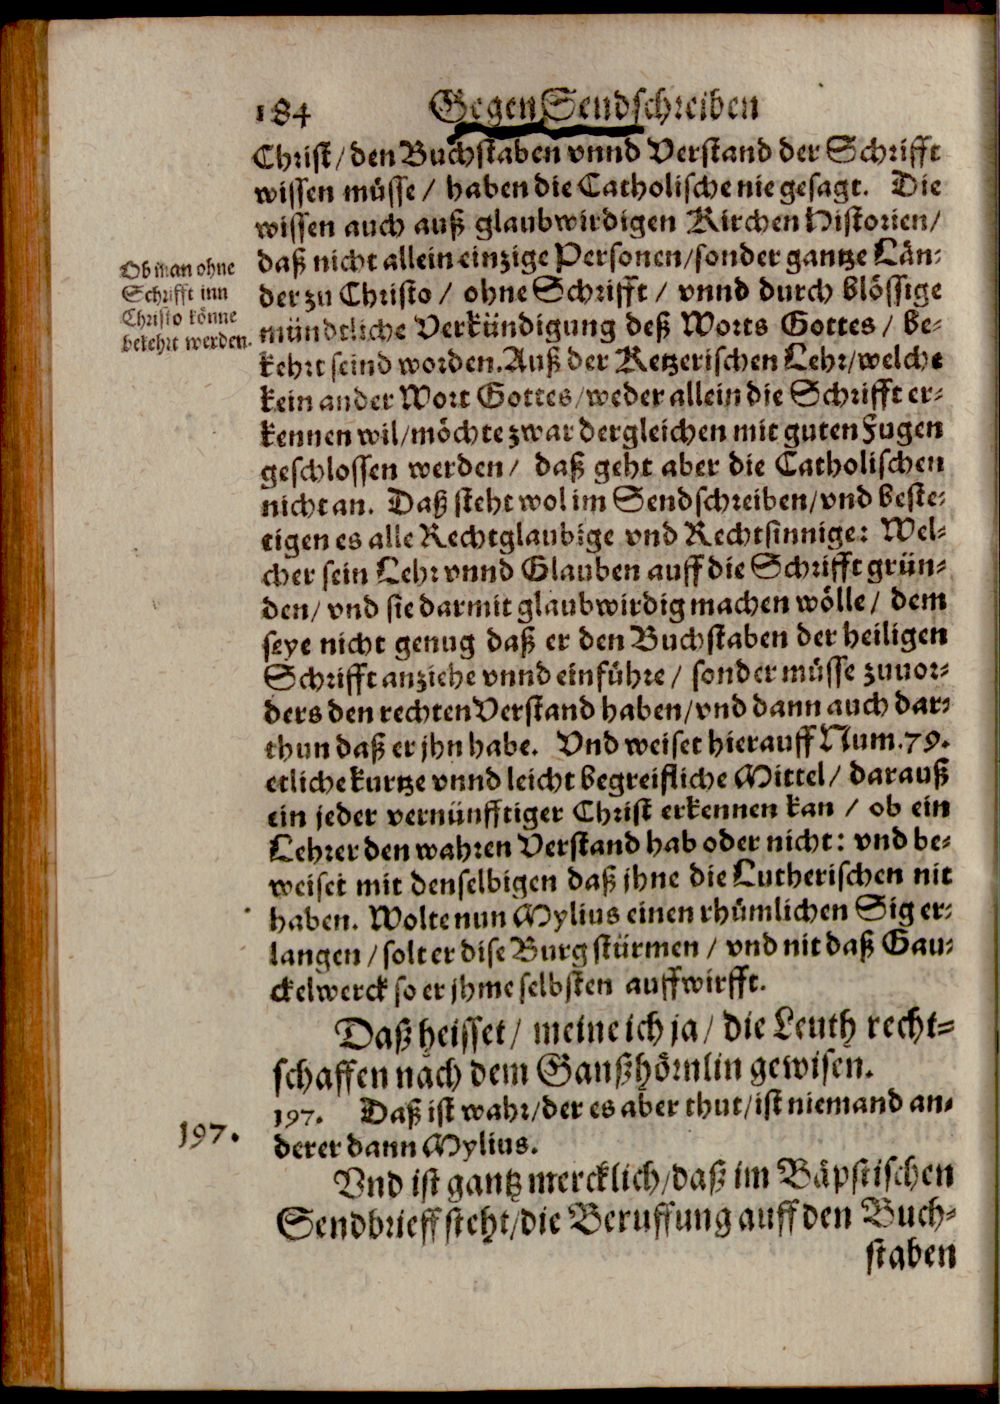 184 GegenSendschreiben
Christ / den Buchstaben vnnd Verstand der Schrifft
wissen müsse / haben die Catholische nie gesagt. Die
wissen auch auß glaubwirdigen Kirchen Historien /
daß nicht allein einzige Personen / sonder gantze Län-
der zu Christo / ohne Schrifft / vnnd durch blössige
mündtliche Verkündigung deß Worts Gottes / be-
kehrt seind worden. Auß der Ketzerischen Lehr / welche
kein ander Wort Gottes / weder allein die Schrifft er-
kennen wil / möchte zwar dergleichen mit guten Fugen
geschlossen werden / daß geht aber die Catholischen
nicht an. Daß steht wol im Sendschreiben / vnd beste-
tigen es alle Rechtglaubige vnd Rechtsinnige: Wel-
cher sein Lehr vnnd Glauben auff die Schrifft grün-
den / vnd sie darmit glaubwirdig machen wölle / dem
seye nicht genug daß er den Buchstaben der heiligen
Schrifft anziehe vnnd einführe / sonder müsse zuuor-
ders den rechten Verstand haben / vnd dann auch dar-
thun daß er jhn habe. Vnd weiset hierauff Num. 79.
etliche kurtze vnnd leicht begreifliche Mittel / darauß
ein jeder vernünfftiger Christ erkennen kan / ob ein
Lehrer den wahren Verstand hab oder nicht: vnd be-
weiset mit denselbigen daß jhne die Lutherischen nit
haben. Wolte nun Mylius einen rhümlichen Sig er-
langen / solt er dise Burg stürmen / vnd nit daß Gau-
ckelwerck so er jhme selbsten auffwirfft.
Daß heisset / meine ich ja / die Leuth recht-
schaffen nach dem Gaußhörnlin gewisen.
197. Daß ist wahr / der es aber thut / ist niemand an-
derer dann Mylius.
Vnd ist gantz mercklich / daß im Bäpstischen
Sendbrieff steht / die Beruffung auff den Buch-
staben
Ob man ohne
Schrifft inn
Christo könne
bekehrt werden.
197.